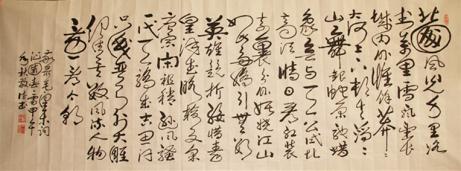 北國風光千里冰
封萬里雪飄望長
城內外惟餘莽莽
大河上下頓失滔滔
山舞銀蛇原馳蠟
象欲與天公試比
高須晴日看紅裝
素裹分外妖嬈江山
如此多嬌引無數
英雄競折腰惜秦
皇漢武略輸文采
唐宗宋祖稍遜風騷
一代天驕成吉思汗
只識彎弓射大雕
俱往矣數風流人物
還看今朝
毛澤東詞
沁園春雪甲午
年秋